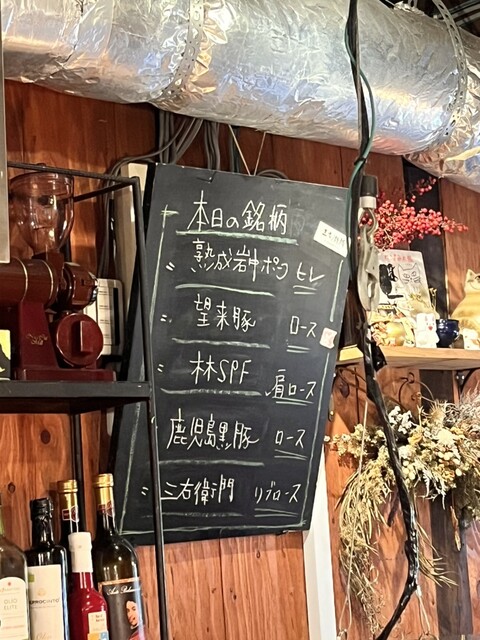 本日の銘柄
熟成岩中ポーク ヒレ
望来豚 ロース
林SPF 肩ロース
鹿児島黒豚 ロース
三右衛門 リブロース